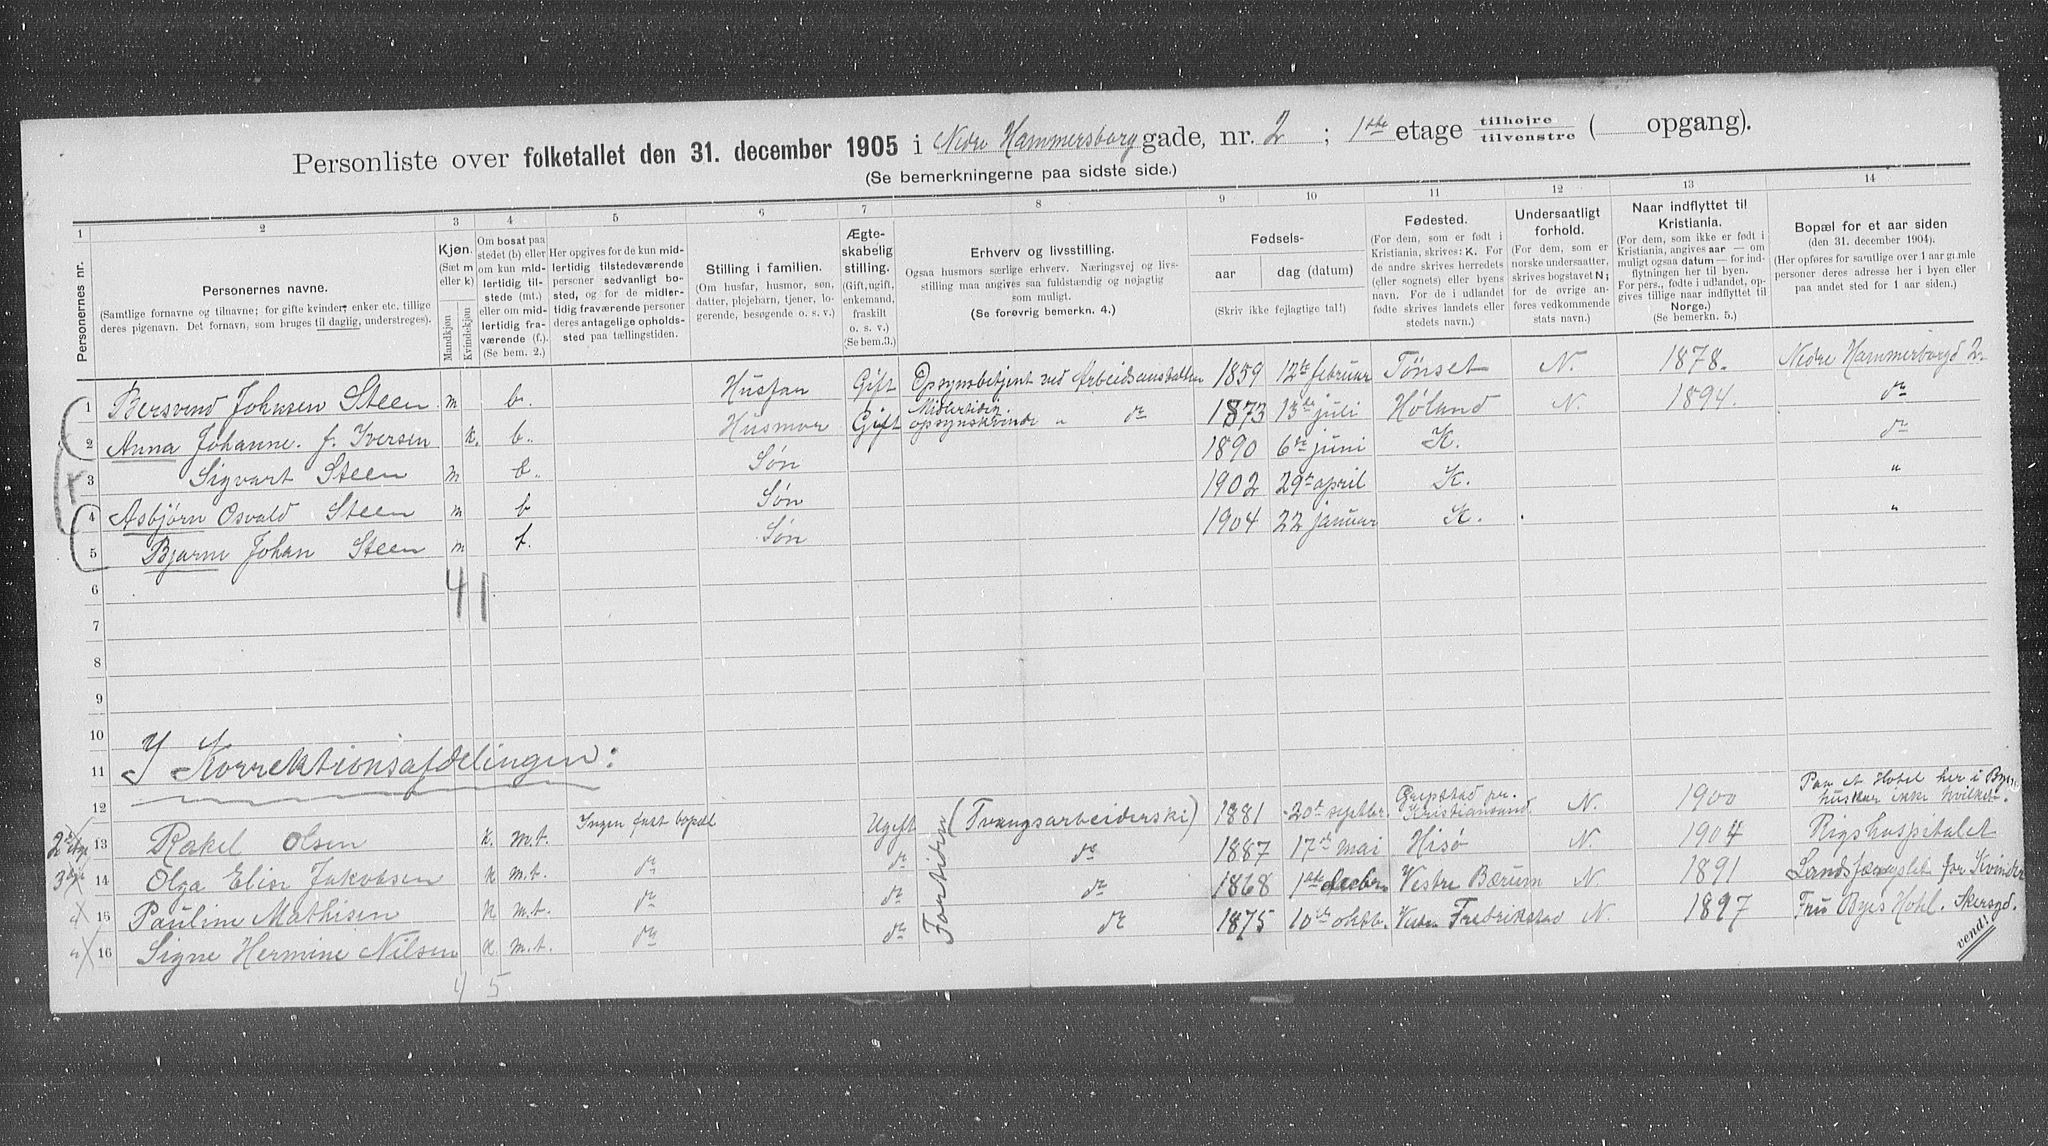 Personliste over folketallet den 31. december 1905 i Nedre Hammersborg gade, nr. 2 ; 1ste etage tilhøjre tilvenstre ( opgang).
(Se bemerkningerne paa sidste side.)
1 2 3 4 5 6 7 8 9 10 11 12 13 14
Personernes nr.
Personernes navne.
(Samtlige fornavne og tilnavne; for gifte kvinder, enker etc. tillige deres pigenavn. Det fornavn, som bruges til daglig, understreges).
Kjøn.
(Sæt m eller k)
Mandkjøn Kvindekjøn
Om bosat paa stedet (b) eller om kun midlertidig tilstede (mt.) eller om midlertidig fraværende (f.). (Se bem. 2.)
Her opgives for de kun midlertidig tilstedeværende personer sedvanligt bosted, og for de midlertidig fraværende personer deres antagelige opholdssted paa tællingstiden.
Stilling i familien.
(Om husfar, husmor, søn, datter, plejebarn, tjener, logerende, besøgende o. s. v.)
Ægteskabelig stilling.
(Gift, ugift, enkemand, fraskilt o. s. v.)
(Se bem.3.)
Erhverv og livsstilling.
Ogsaa husmors særlige erhverv. Næringsvej og livsstilling maa angives saa fuldstændig og nøjagtig som muligt.
(Se forøvrig bemerkn. 4.)
Fødsels-
aar dag (datum)
(Skriv ikke fejlagtige tal!)
Fødested.
(For dem, som er født i Kristiania, skrives: K. For de andre skrives herredets (eller sognets) eller byens navn. For de i udlandet fødte skrives landets eller stedets navn.)
Undersaatligt forhold.
(For dem, som er norske undersaatter, skrives bogstavet N; for de øvrige anføres vedkommende stats navn.)
Naar indflyttet til Kristiania.
(For dem, som ikke er født i Kristiania, angives aar — om muligt ogsaa datum — for indflytningen her til byen. For pers., fødte i udlandet, opgives tillige naar indflyttet til Norge.)
(Se bemerkn. 5.)
Bopæl for et aar siden
(den 31. december 1904).
(Her opføres for samtlige over 1 aar gamle personer deres adresse her i byen eller paa andet sted for 1 aar siden.)
1 Bersvend Johnsen Steen m b. Husfar Gift Opsynsbetjent ved Arbeidsanstalten 1859 12te februar Tønset N. 1878. Nedre Hammerborgd 2
2 Anna Johanne. f. Iversen k. b. Husmor Gift Midlertidig opsynskvinde " do 1873 13de juli Høland N. 1894. do
3 Sigvart Steen m b. Søn 1890 6te juni K. do
4 Asbjørn Osvald Steen m b Søn 1902 29de april K. "
5 Bjarne Johan Steen m f. Søn 1904 22 januar K. "
6 4 1
7
8
9
10
11 I Korrektionsafdelingen:
12
13 Rakel Olsen k. m.t. Ingen fast bopæl Ugift Fortiden (Tvangsarbeiderski) 1881 20de septbr. Kristiansand N. 1900 Paa et Hotel her i Byen husker ikke hvilket.
14 Olga Elise Jakobsen k m.t. do do do 1887 17de mai Hisø N. 1904 Rigshospitalet
15 Pauline Mathisen k m.t. do do do 1868 1ste decbr Vestre Bærum N. 1891 Landsfængslet for Kvinder
16 Signe Hermine Nilsen k. m.t. do do do 1875 10de oktb. Vestre Fredrikstad N. 1897 Fru Byes Hotl. Skersgd.
4 5
vend!